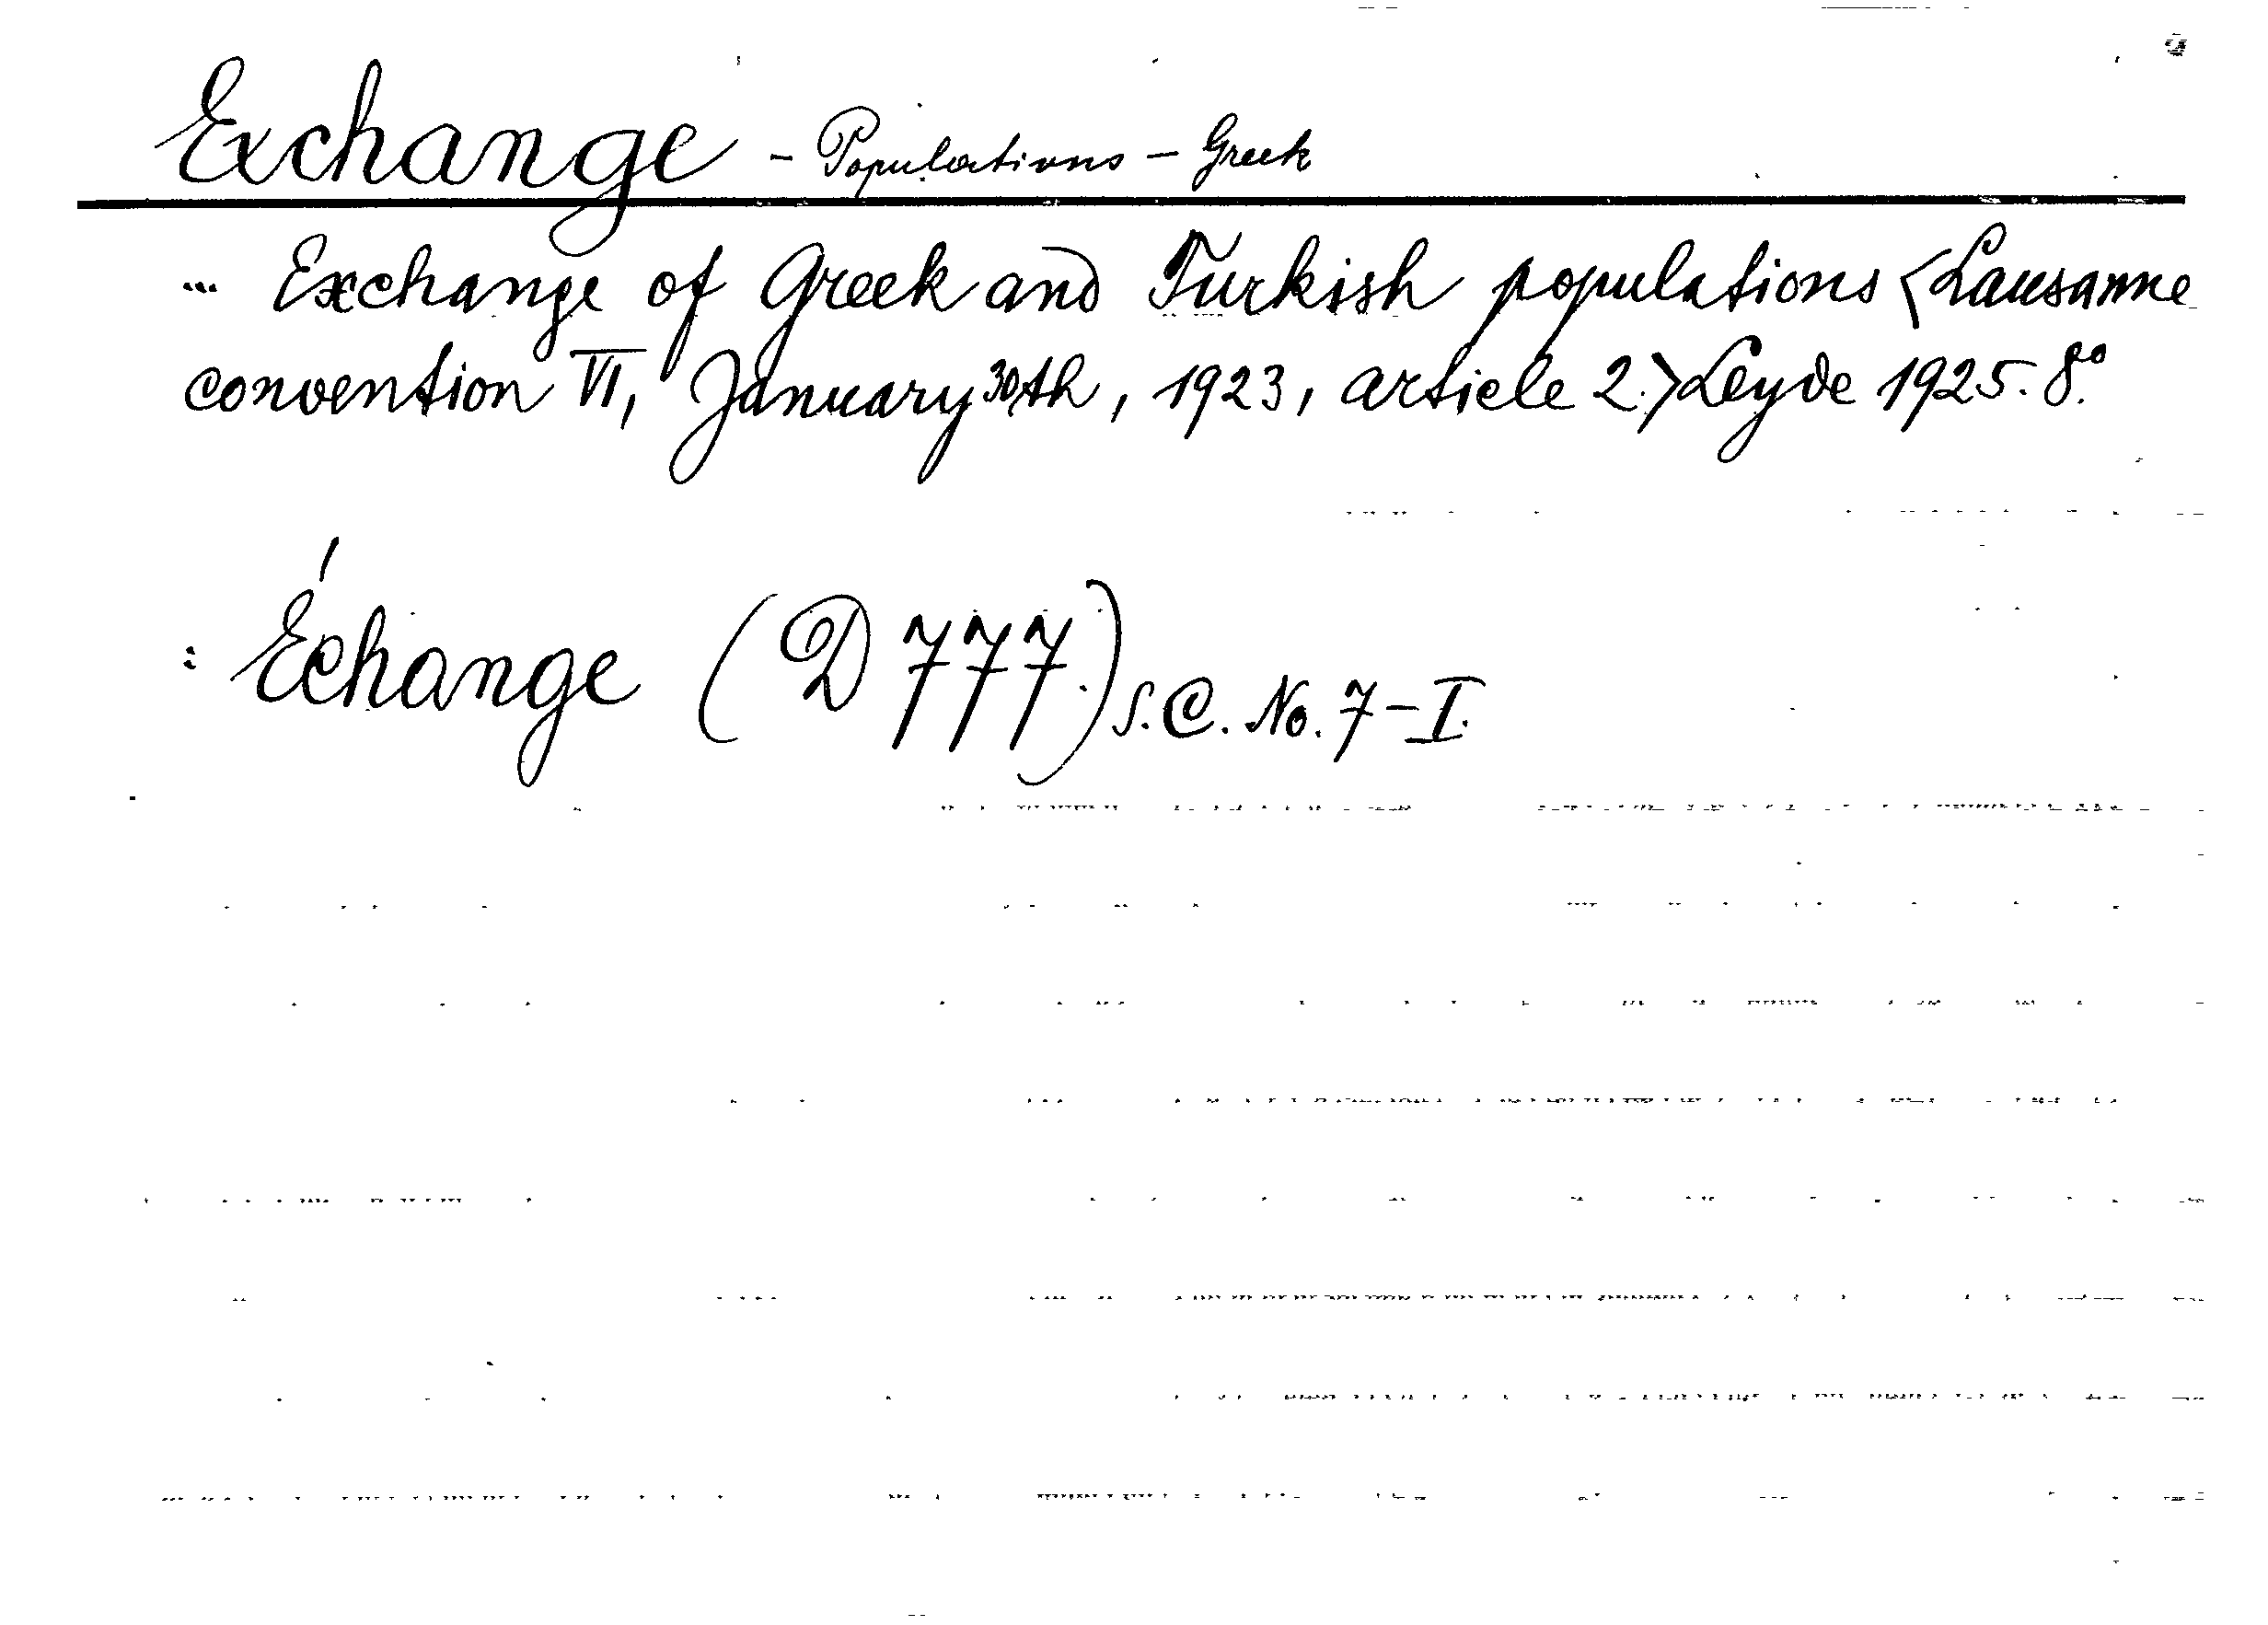 Exchange - Populations - Greek
... Exchange of Greek and Turkish populations <Lausanne
convention VI, January 30th, 1923, article 2.> Leyde 1925. 8º.
: Échange (D 777.) S.C. No. 7-I.